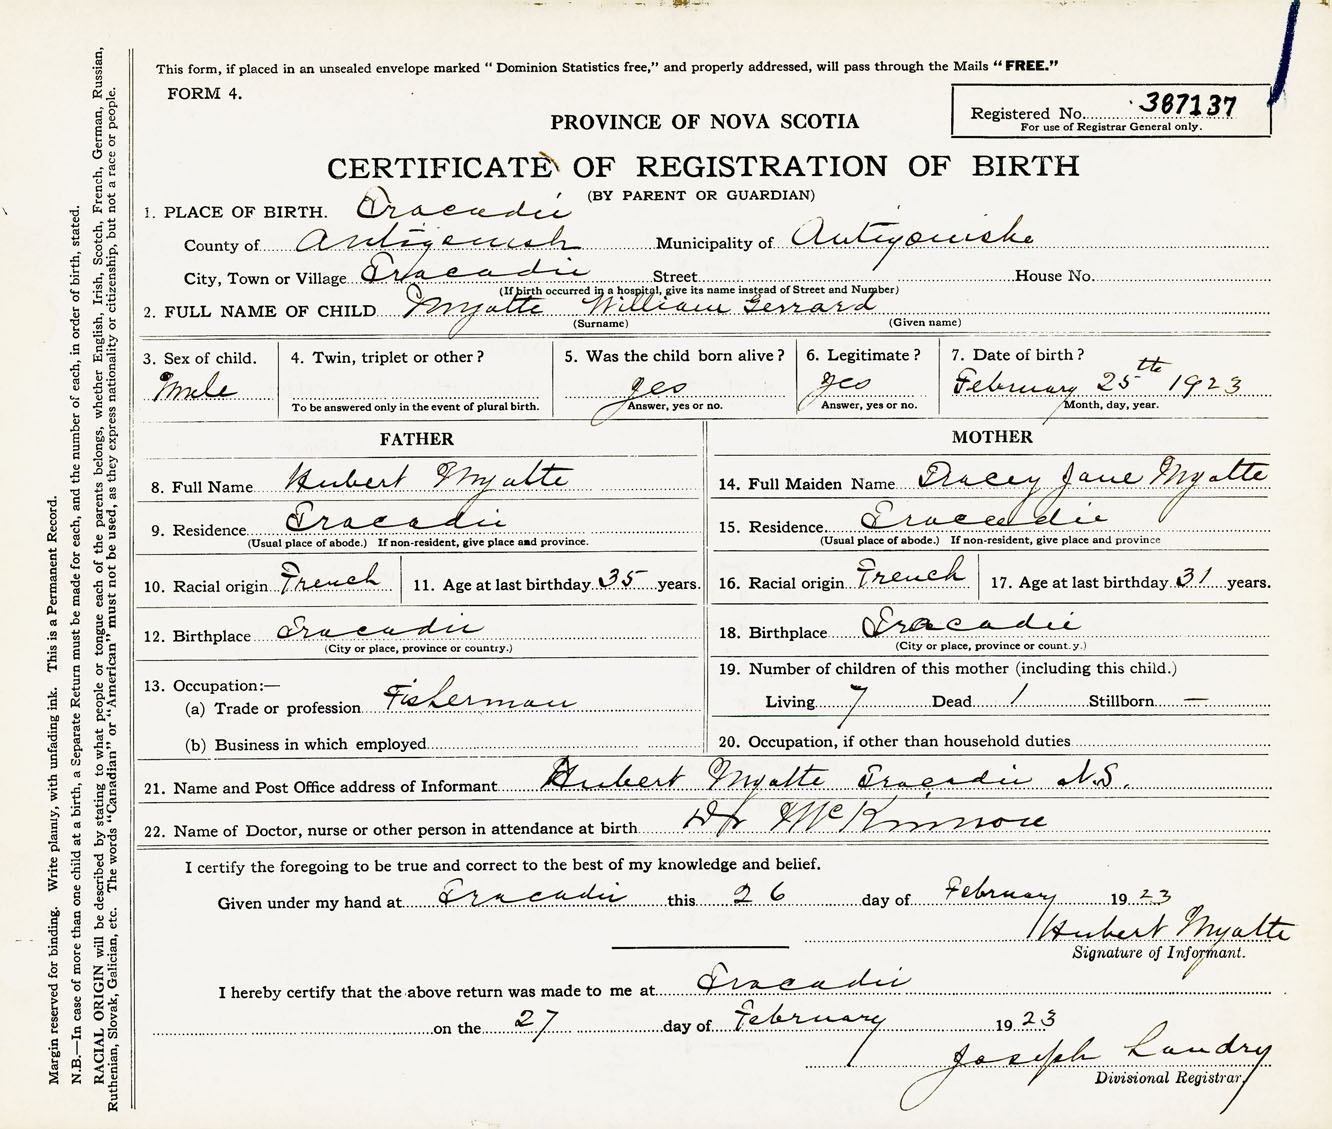 This form, if placed in an unsealed envelope marked “ Dominion Statistics free,” and properly addressed, will pass through the Mails “ FREE.”
FORM 4.
Registered No. 387137
For use of Registrar General only.
PROVINCE OF NOVA SCOTIA
CERTIFICATE OF REGISTRATION OF BIRTH
(BY PARENT OR GUARDIAN)
1. PLACE OF BIRTH. Tracadie
County of Antigonish Municipality of Antigonishe
City, Town or Village Tracadie Street House No.
(If birth occurred in a hospital, give its name instead of Street and Number)
2. FULL NAME OF CHILD Myatte William Gerrard
(Surname) (Given name)
3. Sex of child. Male
4. Twin, triplet or other ?
To be answered only in the event of plural birth.
5. Was the child born alive ? yes
Answer, yes or no.
6. Legitimate ? yes
Answer, yes or no.
7. Date of birth ? February 25th 1923
Month, day, year.
FATHER
8. Full Name Hubert Myatte
9. Residence Tracadie
(Usual place of abode.) If non-resident, give place and province.
10. Racial origin French 11. Age at last birthday 35 years.
12. Birthplace Tracadie
(City or place, province or country.)
13. Occupation:—
(a) Trade or profession Fisherman
(b) Business in which employed
MOTHER
14. Full Maiden Name Tracey Jane Myatte
15. Residence. Tracadie
(Usual place of abode.) If non-resident, give place and province
16. Racial origin French 17. Age at last birthday 31 years.
18. Birthplace Tracadie
(City or place, province or count.y.)
19. Number of children of this mother (including this child.)
Living 7 Dead 1 Stillborn —
20. Occupation, if other than household duties
21. Name and Post Office address of Informant Hubert Myatte Tracadie N.S.
22. Name of Doctor, nurse or other person in attendance at birth Dr McKinnon
I certify the foregoing to be true and correct to the best of my knowledge and belief.
Given under my hand at Tracadie this 26 day of February 1923
Hubert Myatte
Signature of Informant.
I hereby certify that the above return was made to me at Tracadie
on the 27 day of February 1923
Joseph Landry
Divisional Registrar.
Margin reserved for binding. Write plainly, with unfading ink. This is a Permanent Record.
N.B.—In case of more than one child at a birth, a Separate Return must be made for each, and the number of each, in order of birth, stated.
RACIAL ORIGIN will be described by stating to what people or tongue each of the parents belongs, whether English, Irish, Scotch, French, German, Russian,
Ruthenian, Slovak, Galician, etc. The words “Canadian” or “American” must not be used, as they express nationality or citizenship, but not a race or people.